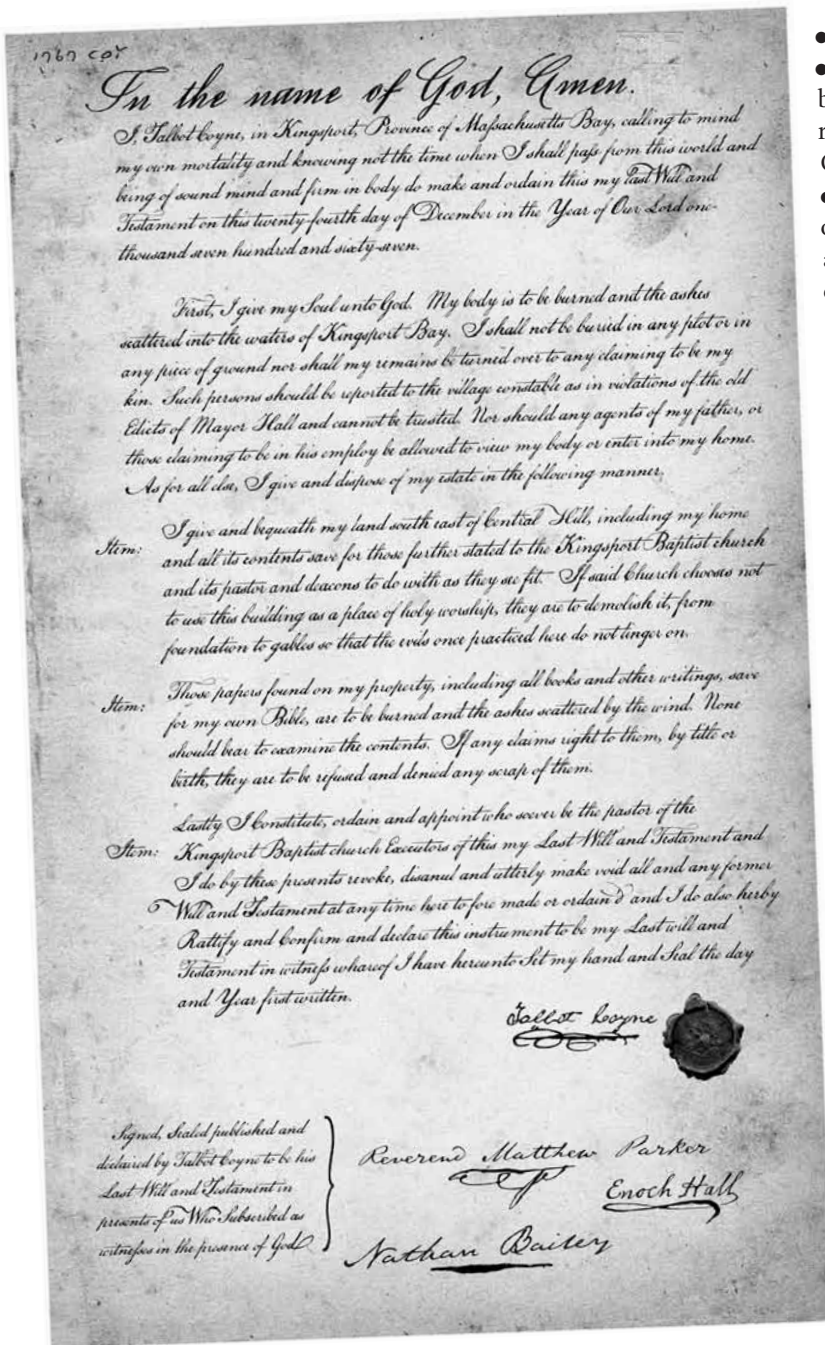 1767 COY
In the name of God, Amen.
I, Talbot Coyne, in Kingsport, Province of Massachusetts Bay, calling to mind
my own mortality and knowing not the time when I shall pass from this world and
being of sound mind and firm in body do make and ordain this my last Will and
Testament on this twenty-fourth day of December in the Year of Our Lord one-
thousand seven hundred and sixty-seven.
First, I give my Soul unto God. My body is to be burned and the ashes
scattered into the waters of Kingsport Bay. I shall not be buried in any plot or in
any piece of ground nor shall my remains be turned over to any claiming to be my
kin. Such persons should be reported to the village constable as in violations of the old
Edicts of Mayor Hall and cannot be trusted. Nor should any agents of my father, or
those claiming to be in his employ be allowed to view my body or enter into my home.
As for all else, I give and dispose of my estate in the following manner.
Item: I give and bequeath my land south east of Central Hill, including my home
and all its contents save for those further stated to the Kingsport Baptist church
and its pastor and deacons to do with as they see fit. If said Church chooses not
to use this building as a place of holy worship, they are to demolish it, from
foundation to gables so that the evils once practiced here do not linger on.
Item: Those papers found on my property, including all books and other writings, save
for my own Bible, are to be burned and the ashes scattered by the wind. None
should bear to examine the contents. If any claims right to them, by title or
birth, they are to be refused and denied any scrap of them.
Lastly I Constitute, ordain and appoint who soever be the pastor of the
Item: Kingsport Baptist church Executors of this my Last Will and Testament and
I do by these presents revoke, disanul and utterly make void all and any former
Will and Testament at any time here to fore made or ordain'd and I do also herby
Rattify and Confirm and declare this instrument to be my Last will and
Testament in witness whareof I have hereunto Set my hand and Seal the day
and Year first written.
Talbot Coyne
Signed, Sealed published and
declaired by Talbot Coyne to be his
Last Will and Testament in
presents of us Who Subscribed as
witnesses in the presence of God
Reverend Matthew Parker
Enoch Hall
Nathan Bailey